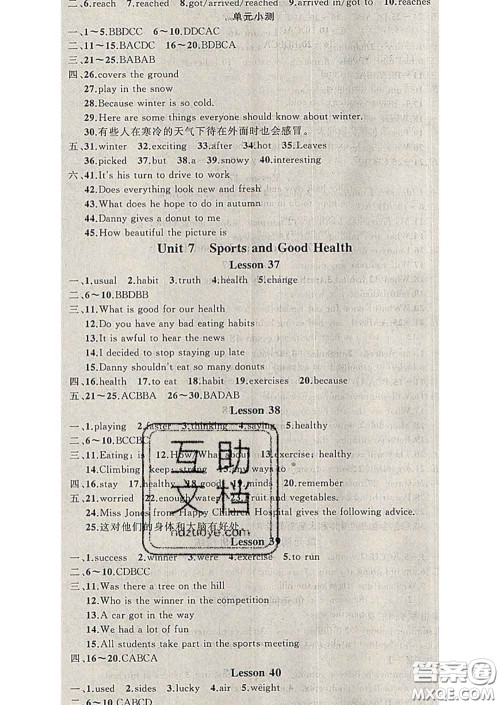 二、6.reach 7.reached 8.got/arrived/reached 9.arrived in/got to 10.reaches
单元小测
一、1～5.BBDCC 6～10.DDCAC
二、11～15.BACDC 16～20.BDBCA
三、21～25.BABAB
四、26.covers the ground
27.play in the snow
28.Because winter is so cold.
29.Here are some things everyone should know about winter.
30.有些人在寒冷的天气下待在外面时也会感冒。
五、31.winter 32.exciting 33.after 34.hot 35.Leaves
36.picked 37.but 38.a 39.snowy 40.interesting
六、41.It's his turn to drive to work
42.Does everything look new and fresh
43.What does he hope to do in autumn
44.Danny gives a donut to me
45.How beautiful the picture is
Unit 7 Sports and Good Health
Lesson 37
一、1.usual 2.habit 3.truth 4.health 5.change
二、6～10.BBDBB
三、11.What is good for our health
12.Do you have any bad eating habits
13.It is awful to hear the news
14.I decided to stop staying up late
15.Danny shouldn't eat so many donuts
四、16.health 17.to eat 18.habit 19.exercises 20.because
五、21～25.ACBBA 26～30.BADAB
Lesson 38
一、1.playing 2.faster 3.thinking 4.saying 5.healthy
二、6～10.BCCBC
三、11.Eating; is 12.How/What about 13.exercise; healthy
14.Climbing keep; strong ways to
四、16.stay 17.healthy 18.good 19.minds 20.remember
五、21.worried 22.enough water 23.fruit and vegetables.
24.Miss Jones from Happy Children Hospital gives the following advice.
25.这对他们的身体和大脑有好处。
Lesson 39
一、1.success 2.winner 3.were 4.exercise 5.to run
二、6～10.CDBCC
三、11.Was there a tree on the hill
12.Who is the winner in the competition
13.A car got in the way
14.We had a lot of fun
15.All students take part in the sports meeting
四、16～20.CABCA
Lesson 40
一、1.used 2.sides 3.lucky 4.air 5.weight
二、6～10.CABCD
互助文档
hdzuoye.com
答案圈
MXQE.COM